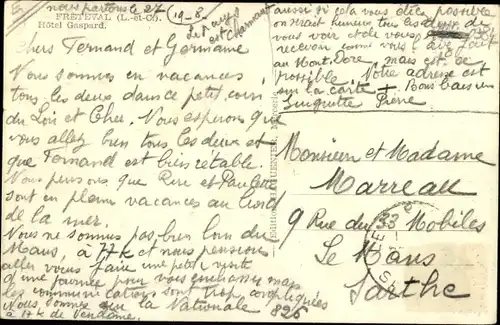 nous partons le 27
FRETEVAL (L.-et-C.).
Hôtel Gaspard.
19-8
Le pays
est Charmant
Chers Fernand et Germaine
Nous sommes en vacances
tous les deux dans ce petit coin
du Loir et Cher. Nous esperons que
vous allez bien tous les deux et
que Fernand est bien retable.
Nous pensons que Rene et Paulette
sont en pleins vacances au bord
de la mer.
Nous ne sommes pas bien loin du
Mans, à 77 k et nous pensions
aller vous faire une petite visite
d'une journée pour vous embrasser mais
les communications sont trop compliquées
Nous sommes sur la Nationale 826
à 17 k de Vendôme.
aussi si cela vous dit possible
on serait heureux tous les deux de
vous voir et de vous
recevoir comme vous avez fait
au Mont Dore, mais est-ce
possible, Notre adresse est
sur la carte + Bons baisers
Huguette Pierre
Mercerie
Monsieur et Madame
Marreau
9 Rue du 33 Mobiles
Le Mans
Sarthe